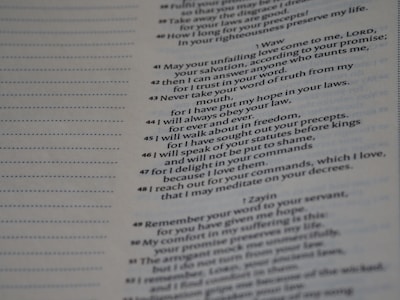 Fulfill your prom
so that you may be
39 Take away the disgrace I dread
for your laws are good.
40 How I long for your precepts!
In your righteousness preserve my life.
ו Waw
41 May your unfailing love come to me, LORD,
your salvation, according to your promise;
42 then I can answer anyone who taunts me,
for I trust in your word.
43 Never take your word of truth from my
mouth,
for I have put my hope in your laws.
44 I will always obey your law,
for ever and ever.
45 I will walk about in freedom,
for I have sought out your precepts.
46 I will speak of your statutes before kings
and will not be put to shame,
47 for I delight in your commands
because I love them.
48 I reach out for your commands, which I love,
that I may meditate on your decrees.
ז Zayin
49 Remember your word to your servant,
for you have given me hope.
50 My comfort in my suffering is this:
your promise preserves my life.
51 The arrogant mock me unmercifully,
but I do not turn from your law.
52 I remember, LORD, your ancient laws,
and I find comfort in them.
53 Indignation grips me because of the wicked,